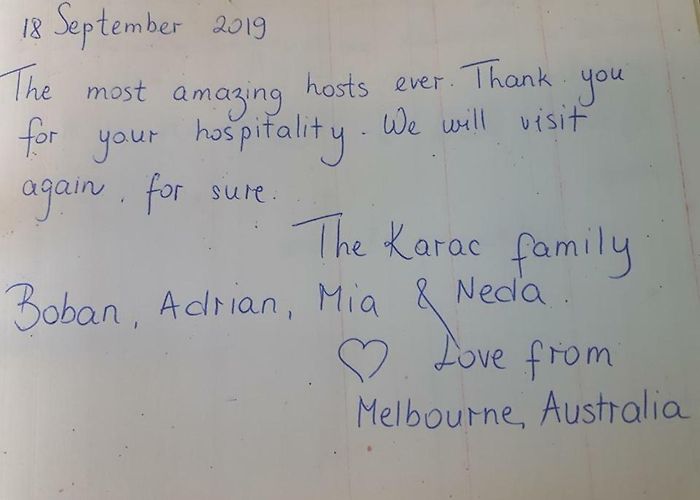 18 September 2019
The most amazing hosts ever. Thank you
for your hospitality. We will visit
again, for sure.
The Karac family
Boban, Adrian, Mia & Neda.
♡ Love from
Melbourne, Australia